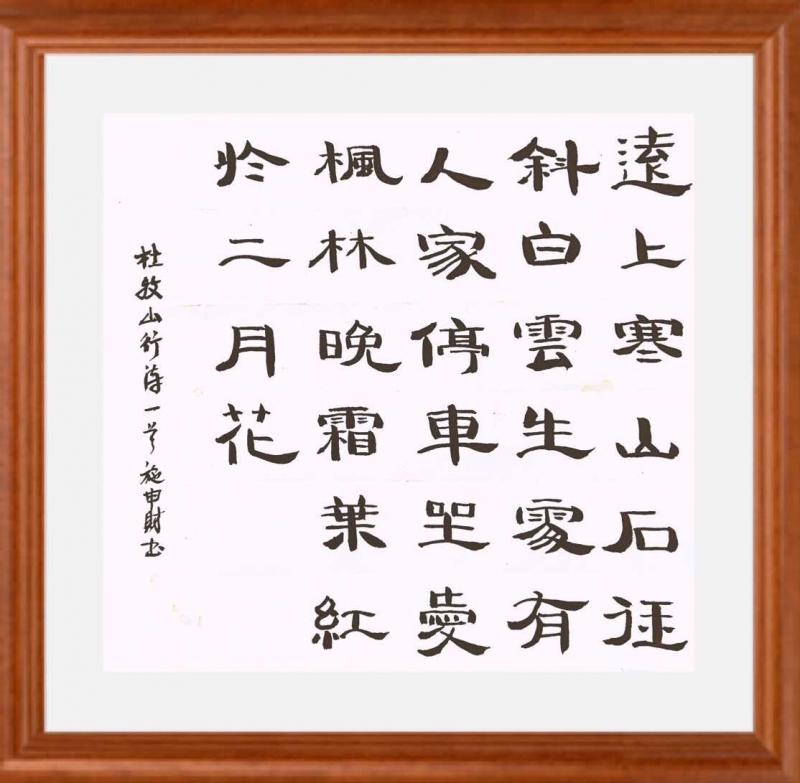 遠上寒山石徑
斜白雲生處有
人家停車坐愛
楓林晚霜葉紅
於二月花
杜牧山行诗一首施申財书